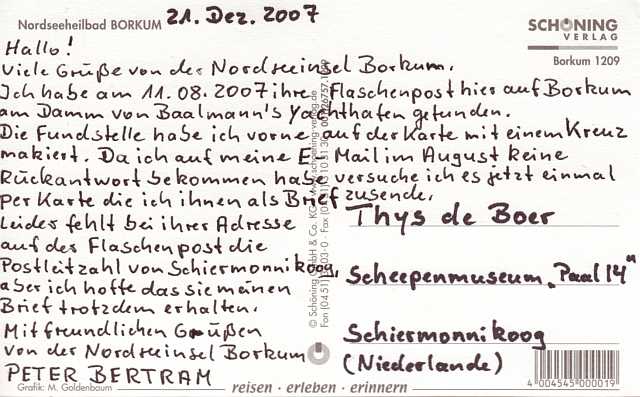 Nordseeheilbad BORKUM
21. Dez. 2007
SCHÖNING
VERLAG
Borkum 1209
Hallo!
Viele Grüße von der Nordseeinsel Borkum.
Ich habe am 11.08.2007 ihre Flaschenpost hier auf Borkum
am Damm von Baalmann's Yachthafen gefunden.
Die Fundstelle habe ich vorne auf der Karte mit einem Kreuz
makiert. Da ich auf meine E-Mail im August keine
Rückantwort bekommen habe versuche ich es jetzt einmal
per Karte die ich ihnen als Brief zusende.
Leider fehlt bei ihrer Adresse
auf der Flaschenpost die
Postleitzahl von Schiermonnikoog,
aber ich hoffe das sie meinen
Brief trotzdem erhalten.
Mit freundlichen Grüßen
von der Nordseeinsel Borkum
PETER BERTRAM
Thys de Boer
Scheepenmuseum „Paal 14"
Schiermonnikoog
(Niederlande)
Grafik: M. Goldenbaum
reisen · erleben · erinnern
4 004545 000019